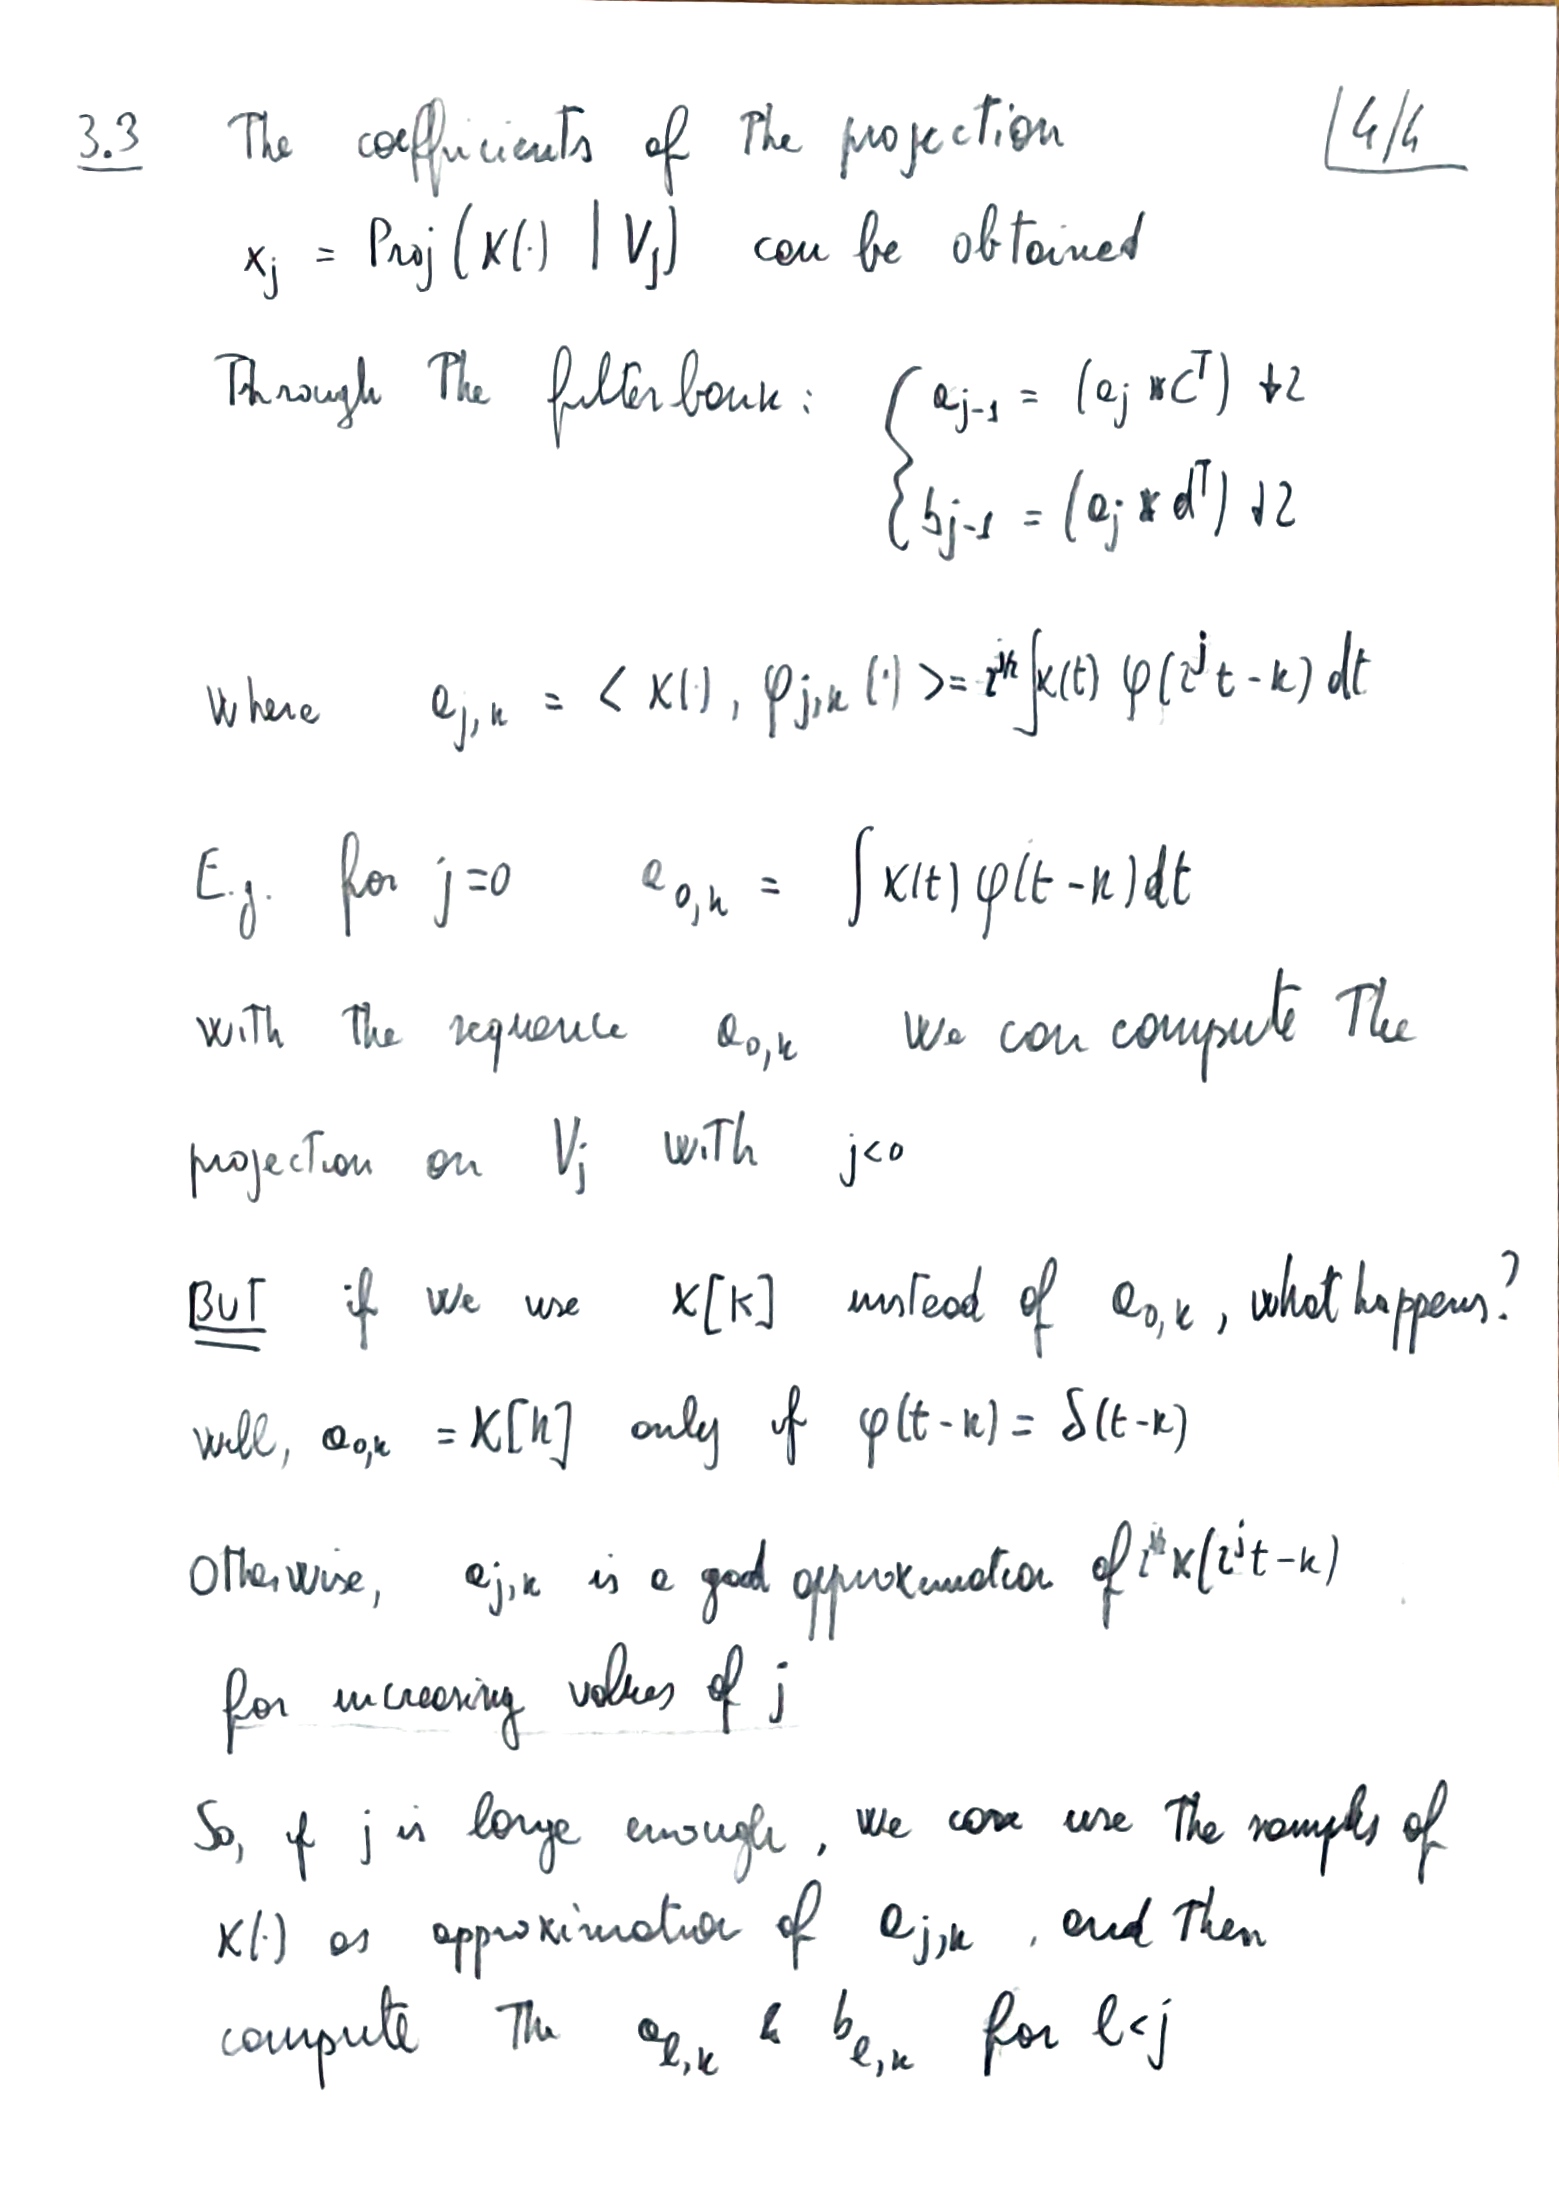 3.3 The coefficients of the projection 4/4
x_j = Proj(x(·) | V_j) can be obtained
Through the filterbank: { a_{j-1} = (a_j * c^T) ↓2
b_{j-1} = (a_j * d^T) ↓2
where a_{j,k} = < x(·), φ_{j,k}(·) > = 2^{j/2} ∫x(t) φ(2^j t - k) dt
E.g. for j=0 a_{0,k} = ∫ x(t) φ(t - k) dt
with the sequence a_{0,k} we can compute the
projection on V_j with j<0
BUT if we use x[k] instead of a_{0,k}, what happens?
well, a_{0,k} = x[k] only if φ(t-k) = δ(t-k)
Otherwise, a_{j,k} is a good approximation of x(2^j t - k)
for increasing values of j
So, if j is large enough, we can use the samples of
x(·) as approximation of a_{j,k}, and then
compute the a_{l,k} & b_{l,k} for l<j